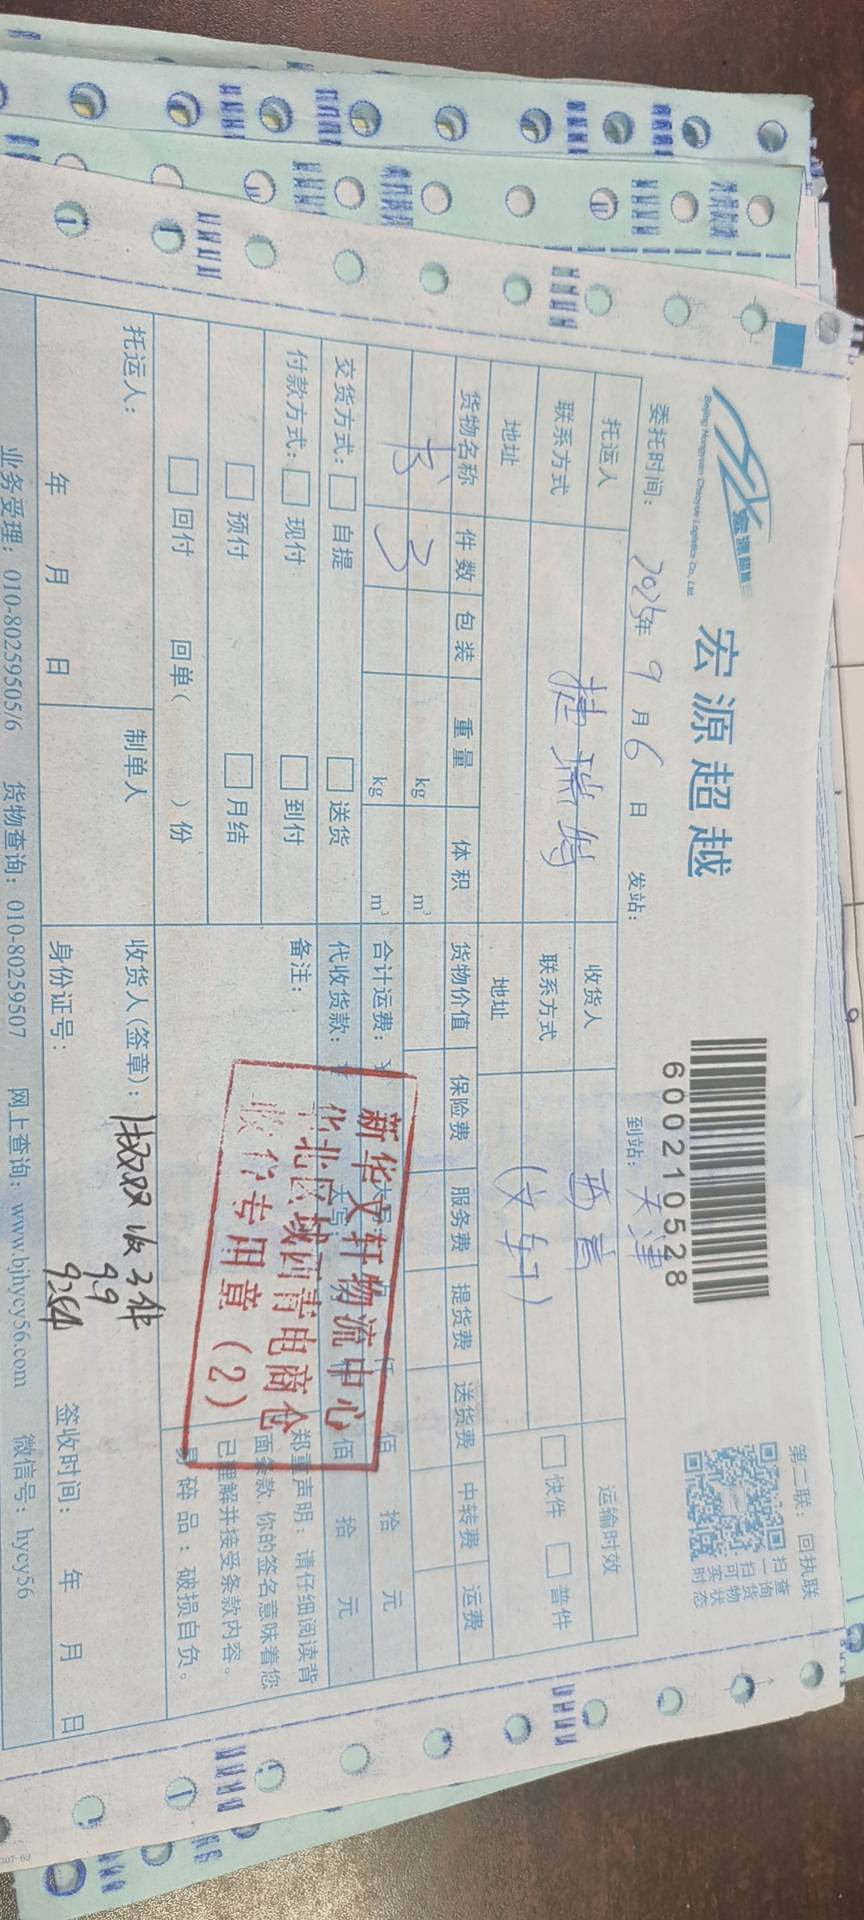 第二联：回执联
宏源超越
Beijing Hongyuan Chaoyue Logistics Co., Ltd.
宏源超越
600210528
扫一扫可实时
查询货物状态
委托时间： 2025年 9 月 6 日 发站： 到站： 天津
托运人 捷瑞特 收货人 西青 运输时效
联系方式 联系方式 (文轩) 快件 普件
地址 地址
货物名称 件数 包装 重量 体积 货物价值 保险费 服务费 提货费 送货费 中转费 运费
书 3 kg m³
kg m³ 合计运费： 佰 拾 元
交货方式： 自提 送货 代收货款： 佰 拾 元
付款方式： 现付 到付 备注：
预付 月结
回付 回单( )份
郑重声明：请仔细阅读背
面条款，你的签名意味着您
已理解并接受条款内容。
易碎品：破损自负。
新华文轩物流中心
华北区域西青电商仓
收货专用章（2）
托运人： 制单人 收货人(签章)： 收3件
9.9
年 月 日 身份证号： 签收时间： 年 月 日
业务受理：010-80259505/6 货物查询：010-80259507 网上查询：www.bjhycy56.com 微信号：hycy56